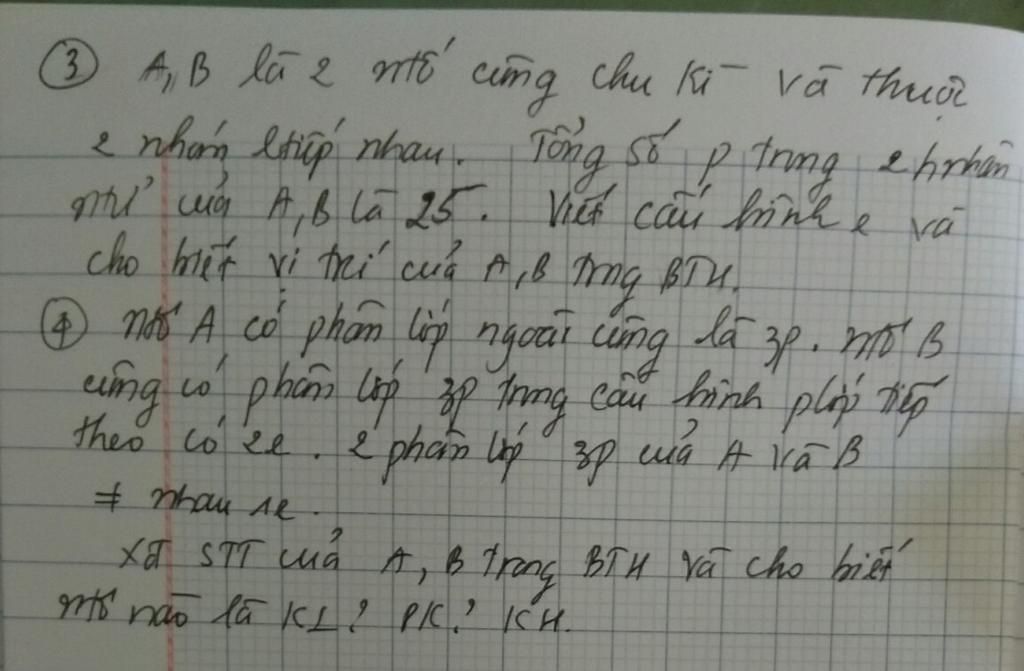 ③ A, B là 2 ntố cùng chu kì và thuộc
2 nhóm ltiếp nhau. Tổng số p trong 2 hnhân
ntử của A, B là 25. Viết cấu hình e và
cho biết vị trí của A, B trong BTH.
④ ntố A có phân lớp ngoài cùng là 3p. ntố B
cũng có phân lớp 3p trong cấu hình plớp tiếp
theo có 2e. 2 phân lớp 3p của A và B
≠ nhau 1e.
Xđ STT của A, B trong BTH và cho biết
ntố nào là KL? PK? KH.